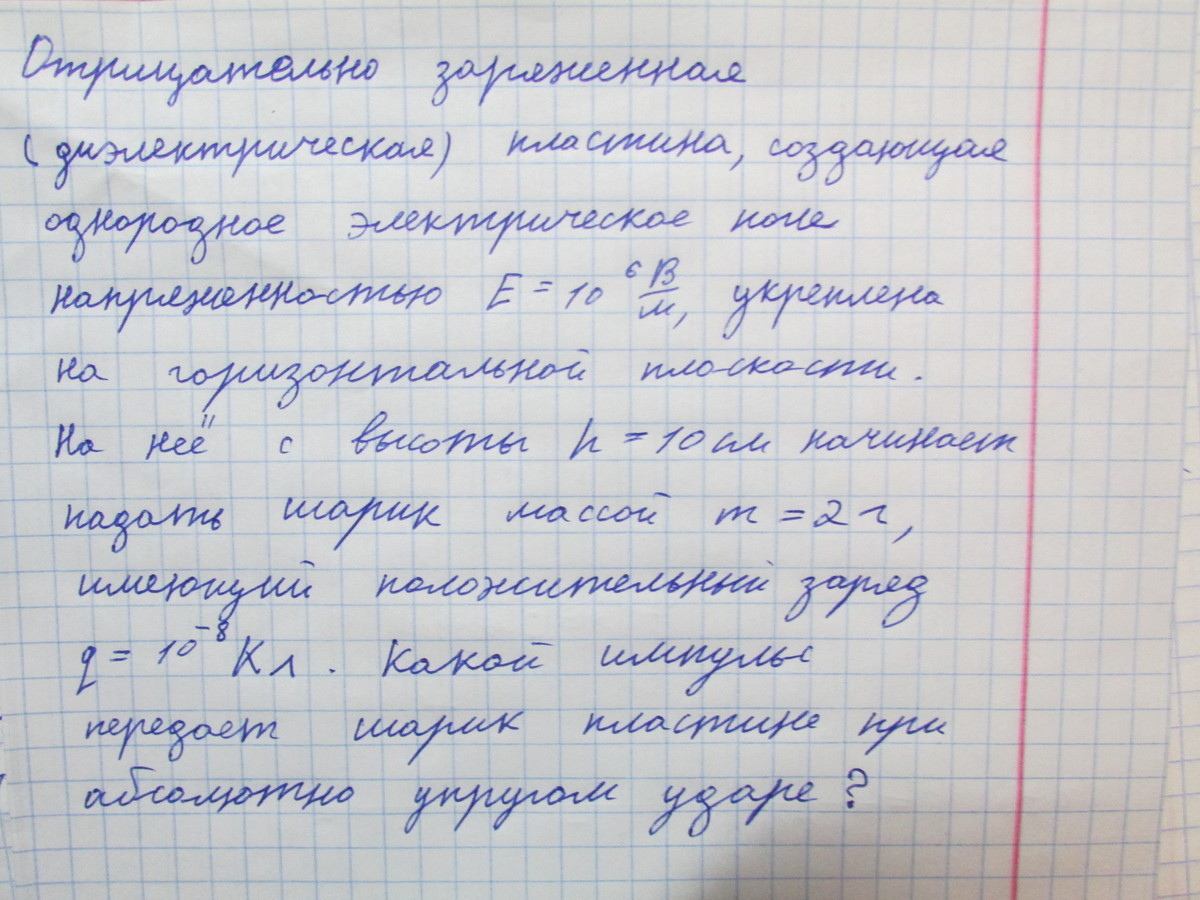 Отрицательно заряженная
(диэлектрическая) пластина, создающая
однородное электрическое поле
напряженностью E = 10⁶ В/м, укреплена
на горизонтальной плоскости.
На неё с высоты h = 10 см начинает
падать шарик массой m = 2 г,
имеющий положительный заряд
q = 10⁻⁸ Кл. Какой импульс
передает шарик пластине при
абсолютно упругом ударе?